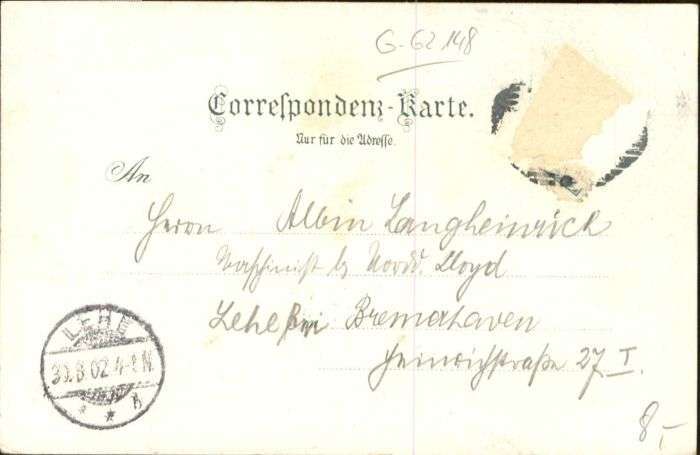 G-G2 148
Correspondenz-Karte.
Nur für die Adresse.
An
Herrn Albin Langheinrich
Maschinist b. Nordd. Lloyd
Lehe bei Bremerhaven
Heinrichstraße 27 I.
LEHE
30.8.02 4-5 N.
* * b
8,-